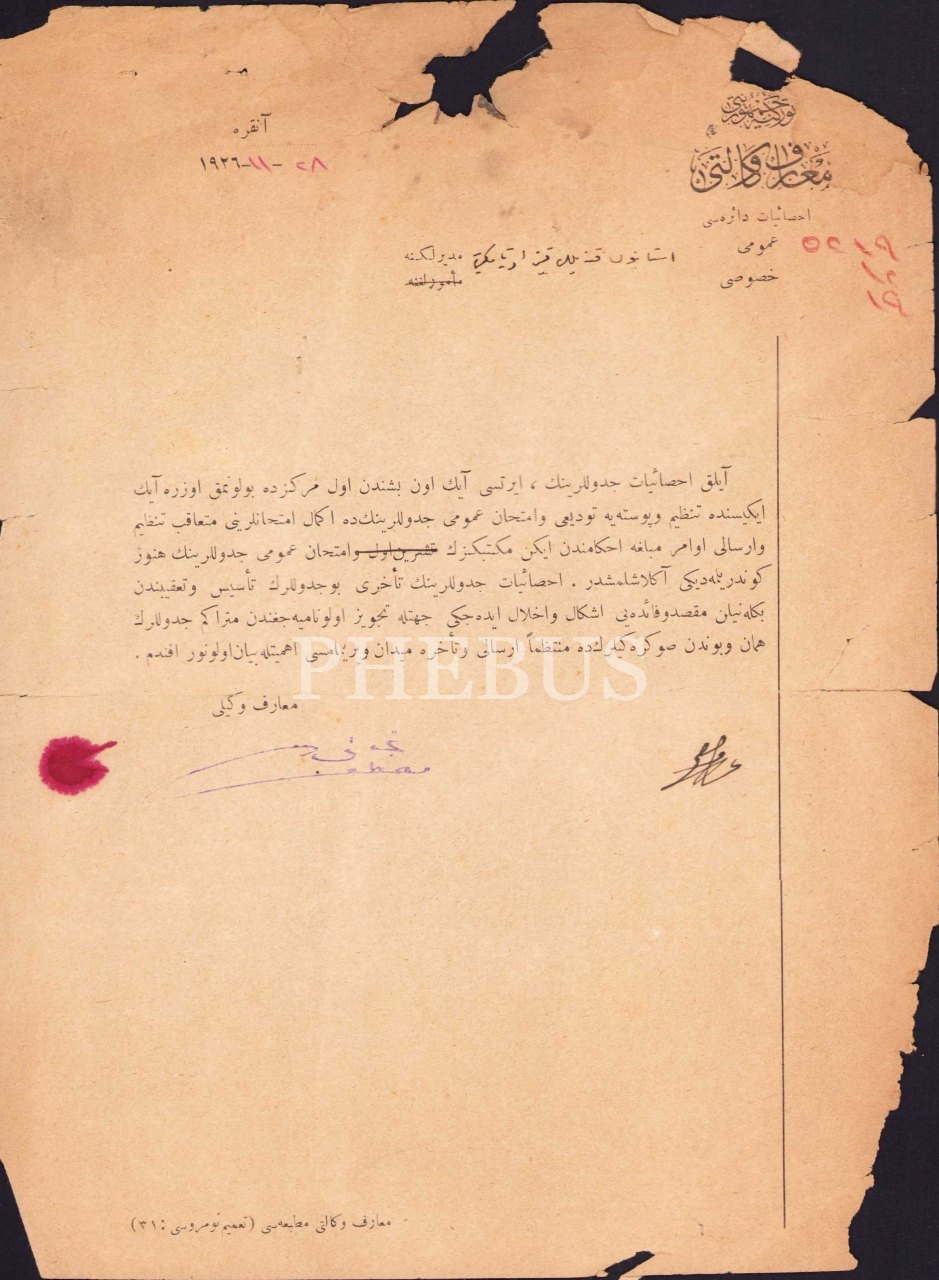 توركيه جمهوريتى
معارف وكالتى
احصائيات دائره‌سى
عمومى ٥٢١٩
خصوصى
آنقره
٢٨-١١-١٩٢٦
استانبول قنديللى قيز اورتا مكتبى مديرلكنه
مأمورلغنه
آيلق احصائيات جدوللرينك ، ايرتسى آيك اون بشندن اول مركزده بولونمق اوزره آيك
ايكيسنده تنظيم وپوسته‌يه توديعى وامتحان عمومى جدوللرينك‌ده اكمال امتحانلرينى متعاقب تنظيم
وارسالى اوامر مبلغه احكامندن ايكن مكتبكزك تشرين‌اول وامتحان عمومى جدوللرينك هنوز
كوندريلمه‌ديكى آكلاشلمشدر . احصائيات جدوللرينك تأخرى بوجدوللرك تأسيس وتعقيبندن
بكله‌نيلن مقصدوفائده‌يى اشكال واخلال ايده‌جكى جهتله تجويز اولونامیه‌جغندن متراكم جدوللرك
همان وبوندن صوكره‌كيلرك‌ده منتظماً ارسالى وتأخره ميدان ويريلمامسى اهميتله‌بيان‌اولونور افندم .
PHEBUS
معارف وكيلى
معارف وكالتى مطبعه‌سى (تعميم‌نومروسى : ٣١)